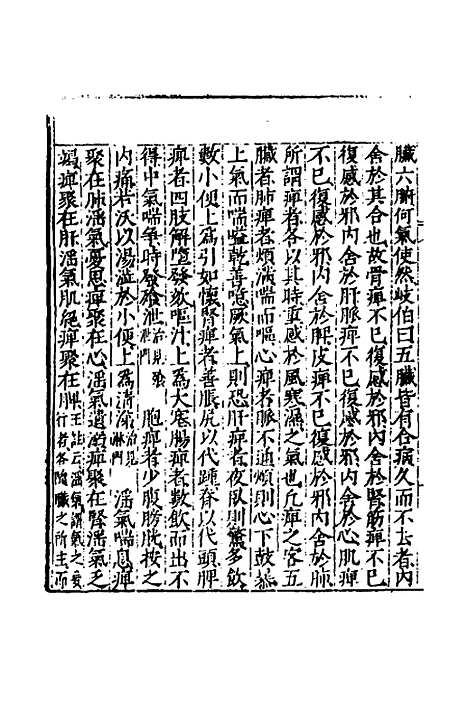 臟六腑何氣使然岐伯曰五臟皆有合病久而不去者内
舍於其合也故骨痺不已復感於邪内舍於腎筋痺不已
復感於邪内舍於肝脈痺不已復感於邪内舍於心肌痺
不已復感於邪内舍於脾皮痺不已復感於邪内舍於肺
所謂痺者各以其時重感於風寒濕之氣也凡痺之客五
臟者肺痺者煩滿喘而嘔心痺者脈不通煩則心下鼓暴
上氣而喘嗌乾善噫厥氣上則恐肝痺者夜臥則驚多飲
數小便上為引如懷腎痺者善脹尻以代踵脊以代頭脾
痺者四肢解墮發欬嘔汁上為大塞腸痺者數飲而出不
得中氣喘爭時發飱泄治見泄門胞痺者少腹膀胱按之
内痛若沃以湯澁於小便上為清涕治見淋門淫氣喘息痺
聚在肺淫氣憂思痺聚在心淫氣遺溺痺聚在腎淫氣乏
竭痺聚在肝淫氣肌絕痺聚在脾王註云淫氣謂氣之妄行者各隨臟之所主而